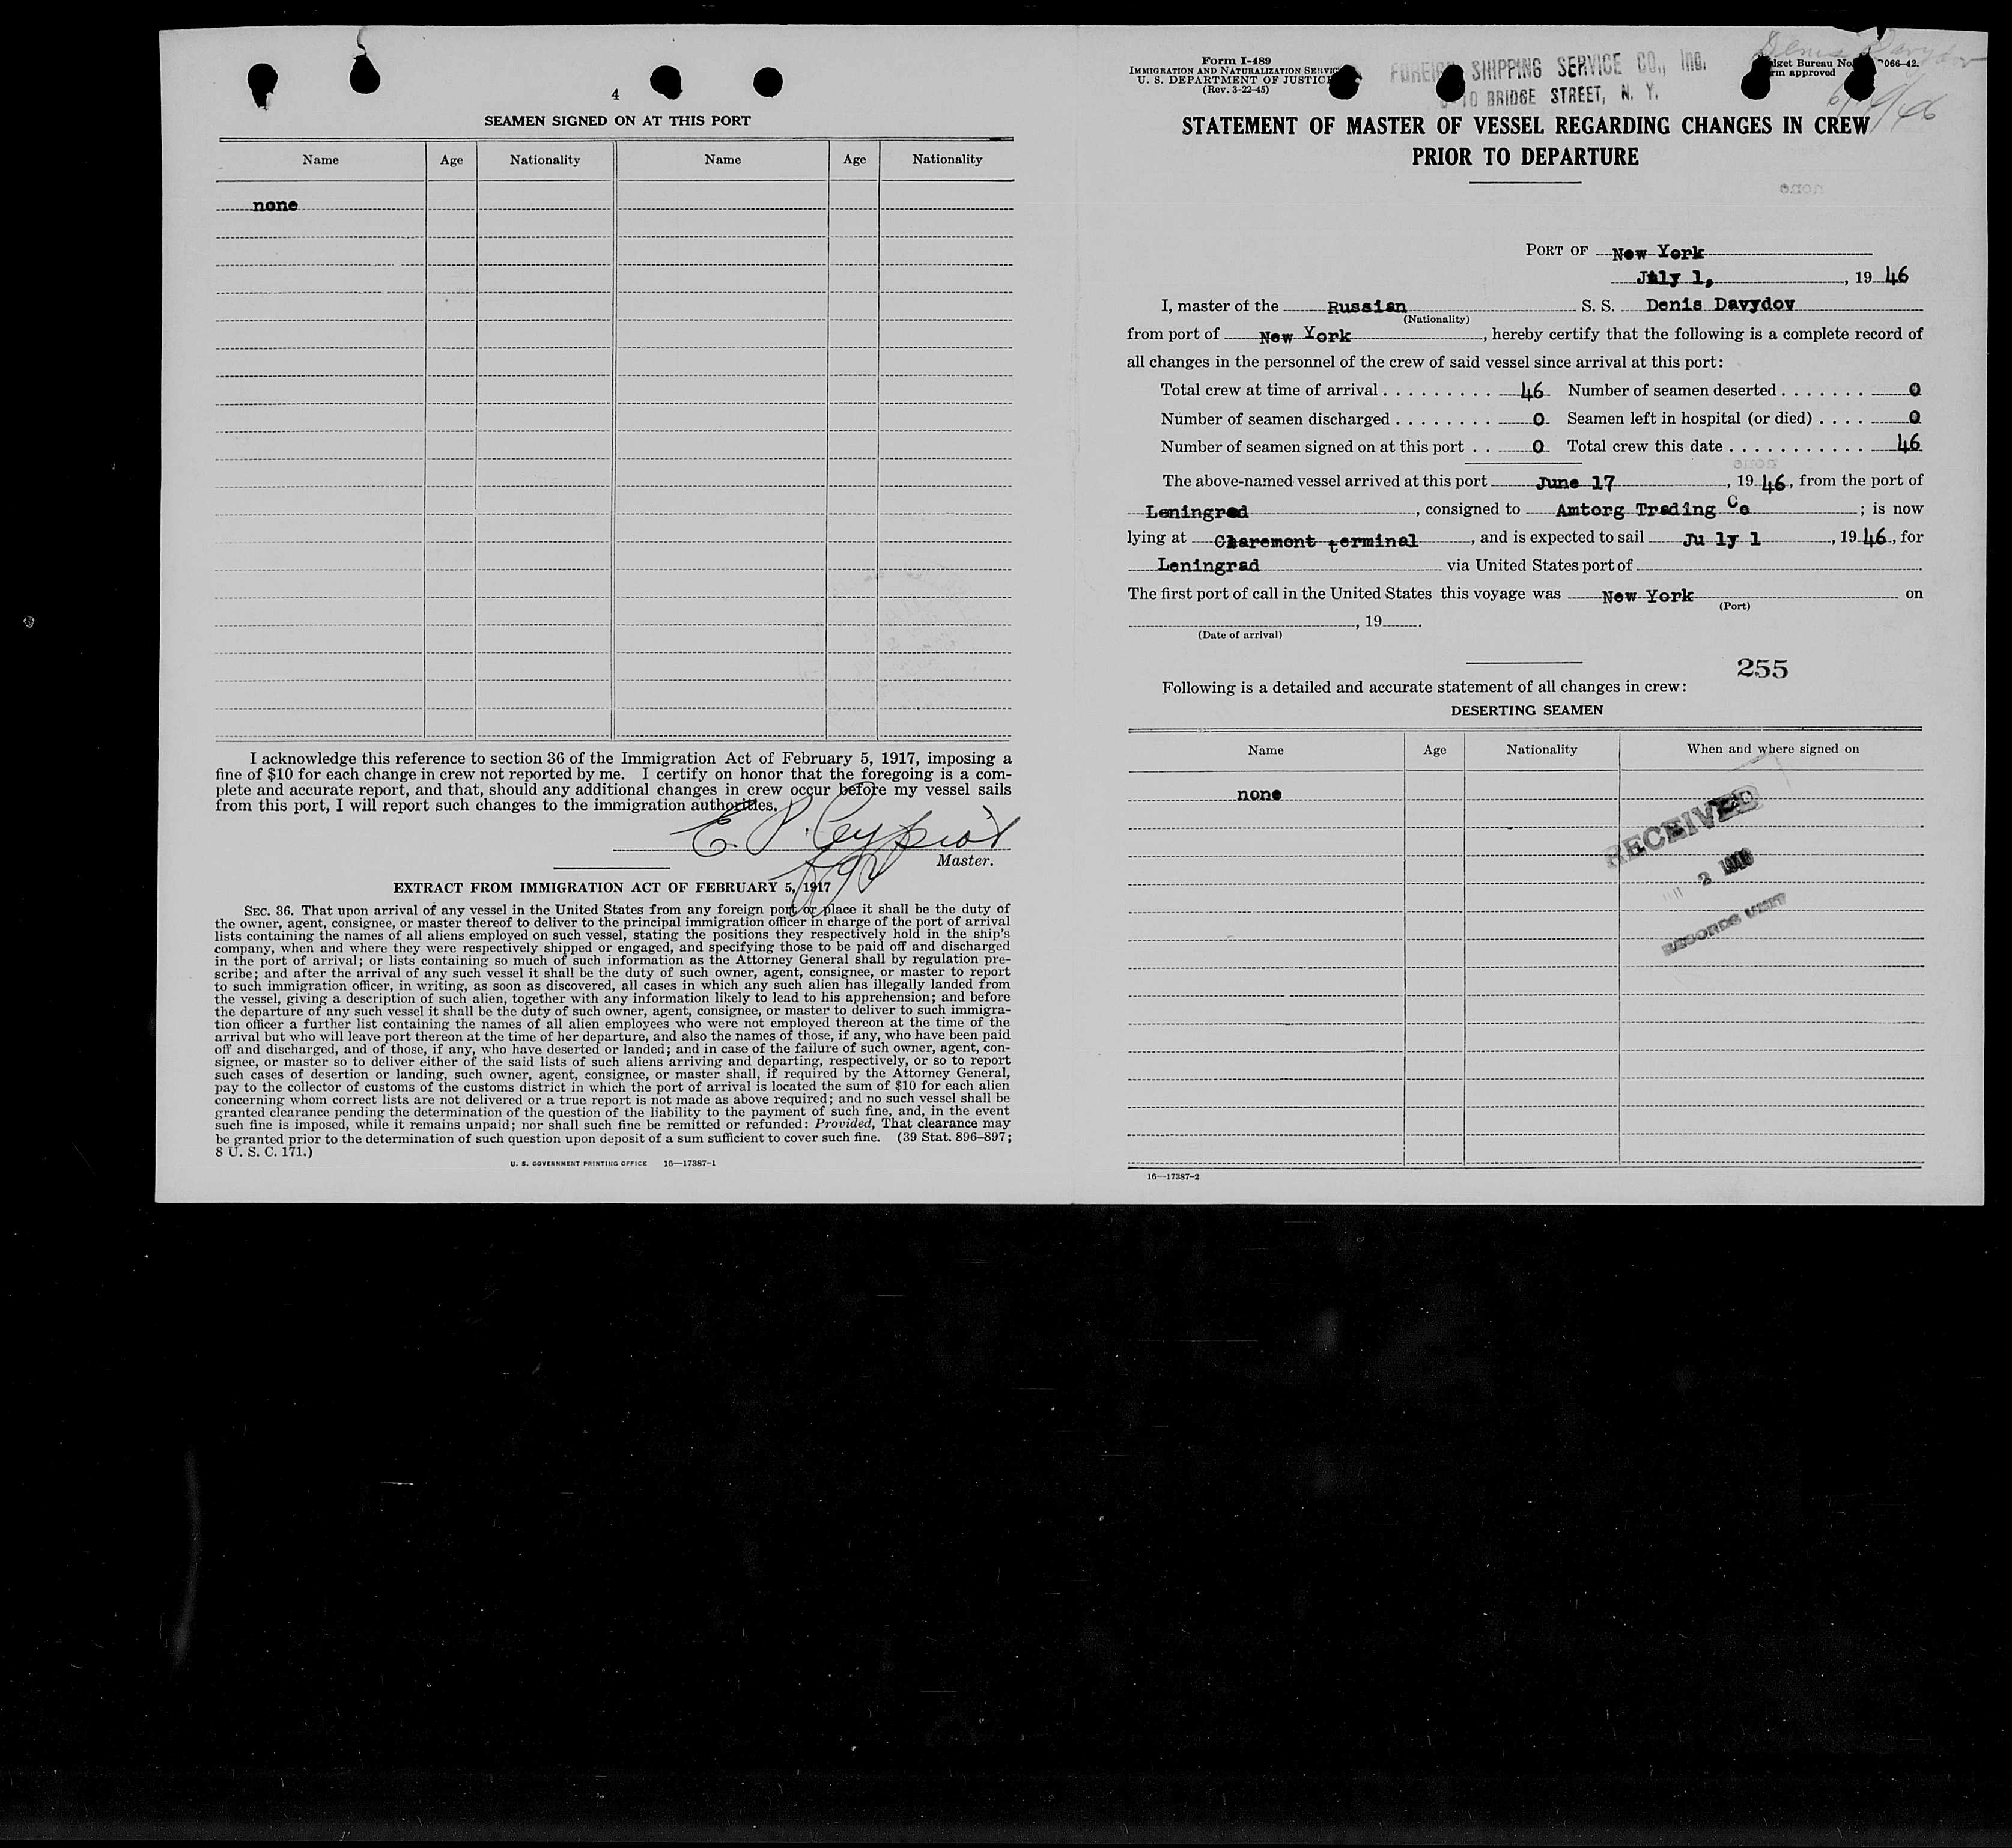 4
SEAMEN SIGNED ON AT THIS PORT
Name Age Nationality Name Age Nationality
none
I acknowledge this reference to section 36 of the Immigration Act of February 5, 1917, imposing a
fine of $10 for each change in crew not reported by me. I certify on honor that the foregoing is a com-
plete and accurate report, and that, should any additional changes in crew occur before my vessel sails
from this port, I will report such changes to the immigration authorities.
Master.
EXTRACT FROM IMMIGRATION ACT OF FEBRUARY 5, 1917
SEC. 36. That upon arrival of any vessel in the United States from any foreign port or place it shall be the duty of
the owner, agent, consignee, or master thereof to deliver to the principal immigration officer in charge of the port of arrival
lists containing the names of all aliens employed on such vessel, stating the positions they respectively hold in the ship's
company, when and where they were respectively shipped or engaged, and specifying those to be paid off and discharged
in the port of arrival; or lists containing so much of such information as the Attorney General shall by regulation pre-
scribe; and after the arrival of any such vessel it shall be the duty of such owner, agent, consignee, or master to report
to such immigration officer, in writing, as soon as discovered, all cases in which any such alien has illegally landed from
the vessel, giving a description of such alien, together with any information likely to lead to his apprehension; and before
the departure of any such vessel it shall be the duty of such owner, agent, consignee, or master to deliver to such immigra-
tion officer a further list containing the names of all alien employees who were not employed thereon at the time of the
arrival but who will leave port thereon at the time of her departure, and also the names of those, if any, who have been paid
off and discharged, and of those, if any, who have deserted or landed; and in case of the failure of such owner, agent, con-
signee, or master so to deliver either of the said lists of such aliens arriving and departing, respectively, or so to report
such cases of desertion or landing, such owner, agent, consignee, or master shall, if required by the Attorney General,
pay to the collector of customs of the customs district in which the port of arrival is located the sum of $10 for each alien
concerning whom correct lists are not delivered or a true report is not made as above required; and no such vessel shall be
granted clearance pending the determination of the question of the liability to the payment of such fine, and, in the event
such fine is imposed, while it remains unpaid; nor shall such fine be remitted or refunded: Provided, That clearance may
be granted prior to the determination of such question upon deposit of a sum sufficient to cover such fine. (39 Stat. 896–897;
8 U. S. C. 171.)
U. S. GOVERNMENT PRINTING OFFICE 16—17387-1
Form I-489
IMMIGRATION AND NATURALIZATION SERVICE
U. S. DEPARTMENT OF JUSTICE
(Rev. 3-22-45)
FOREIGN SHIPPING SERVICE CO., INC.
10 BRIDGE STREET, N. Y.
Denis Davydov
Budget Bureau No. 066-42.
approved
STATEMENT OF MASTER OF VESSEL REGARDING CHANGES IN CREW
PRIOR TO DEPARTURE
PORT OF New York
July 1, , 19 46
I, master of the Russian S. S. Denis Davydov
(Nationality)
from port of New York , hereby certify that the following is a complete record of
all changes in the personnel of the crew of said vessel since arrival at this port:
Total crew at time of arrival . . . . . . . . . 46 Number of seamen deserted . . . . . . . 0
Number of seamen discharged . . . . . . . . 0 Seamen left in hospital (or died) . . . . 0
Number of seamen signed on at this port . . 0 Total crew this date . . . . . . . . . . . 46
The above-named vessel arrived at this port June 17 , 19 46, from the port of
Leningrad , consigned to Amtorg Trading Co ; is now
lying at Claremont terminal , and is expected to sail Ju ly 1 , 19 46, for
Leningrad via United States port of .
The first port of call in the United States this voyage was New York on
(Port)
, 19 .
(Date of arrival)
255
Following is a detailed and accurate statement of all changes in crew:
DESERTING SEAMEN
Name Age Nationality When and where signed on
none
RECEIVED
2
RECORDS UNIT
16—17387-2